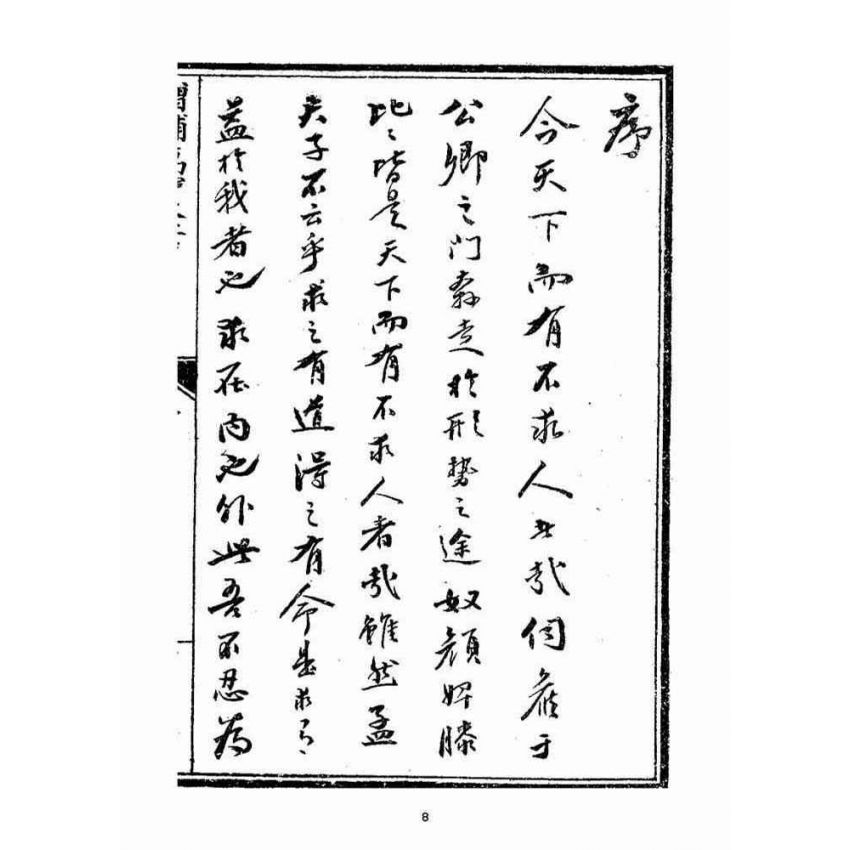 序
今天下而有不求人者哉伺候于
公卿之门奔走於形勢之途奴顏婢膝
比〻皆是天下而有不求人者哉雖然孟
夫子不云乎求之有道得之有命是求
益於我者也求在内也外此吾不忍為
增補
8